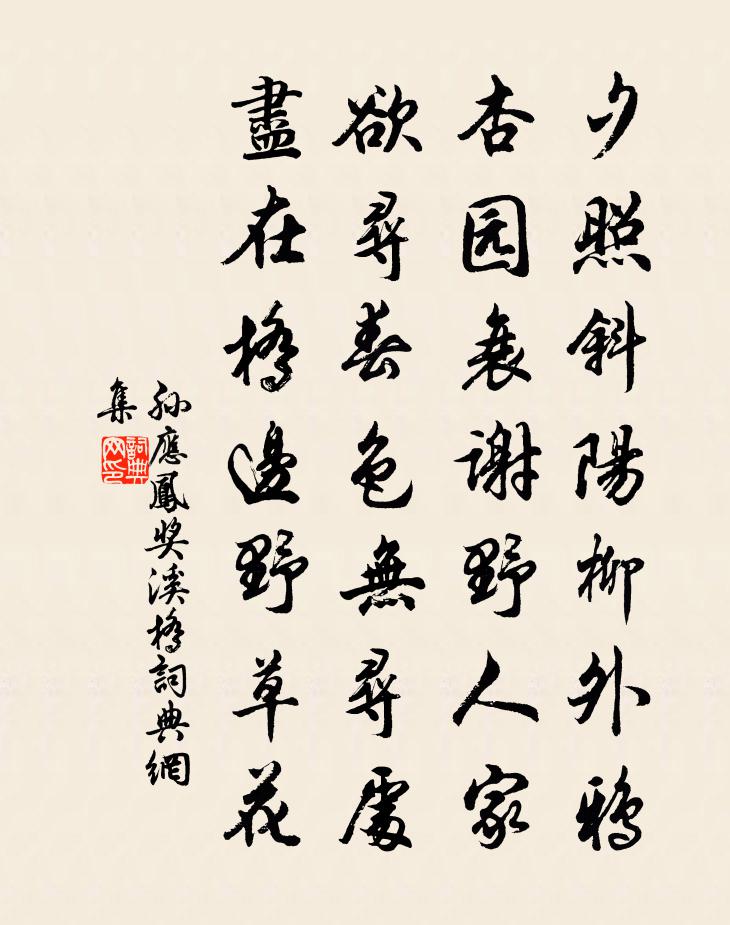 夕照斜陽柳外鴉
杏园衰謝野人家
欲尋春色無尋處
盡在橋邊野草花
孙應鳳奖溪橋詞典網
集
詞典
网印